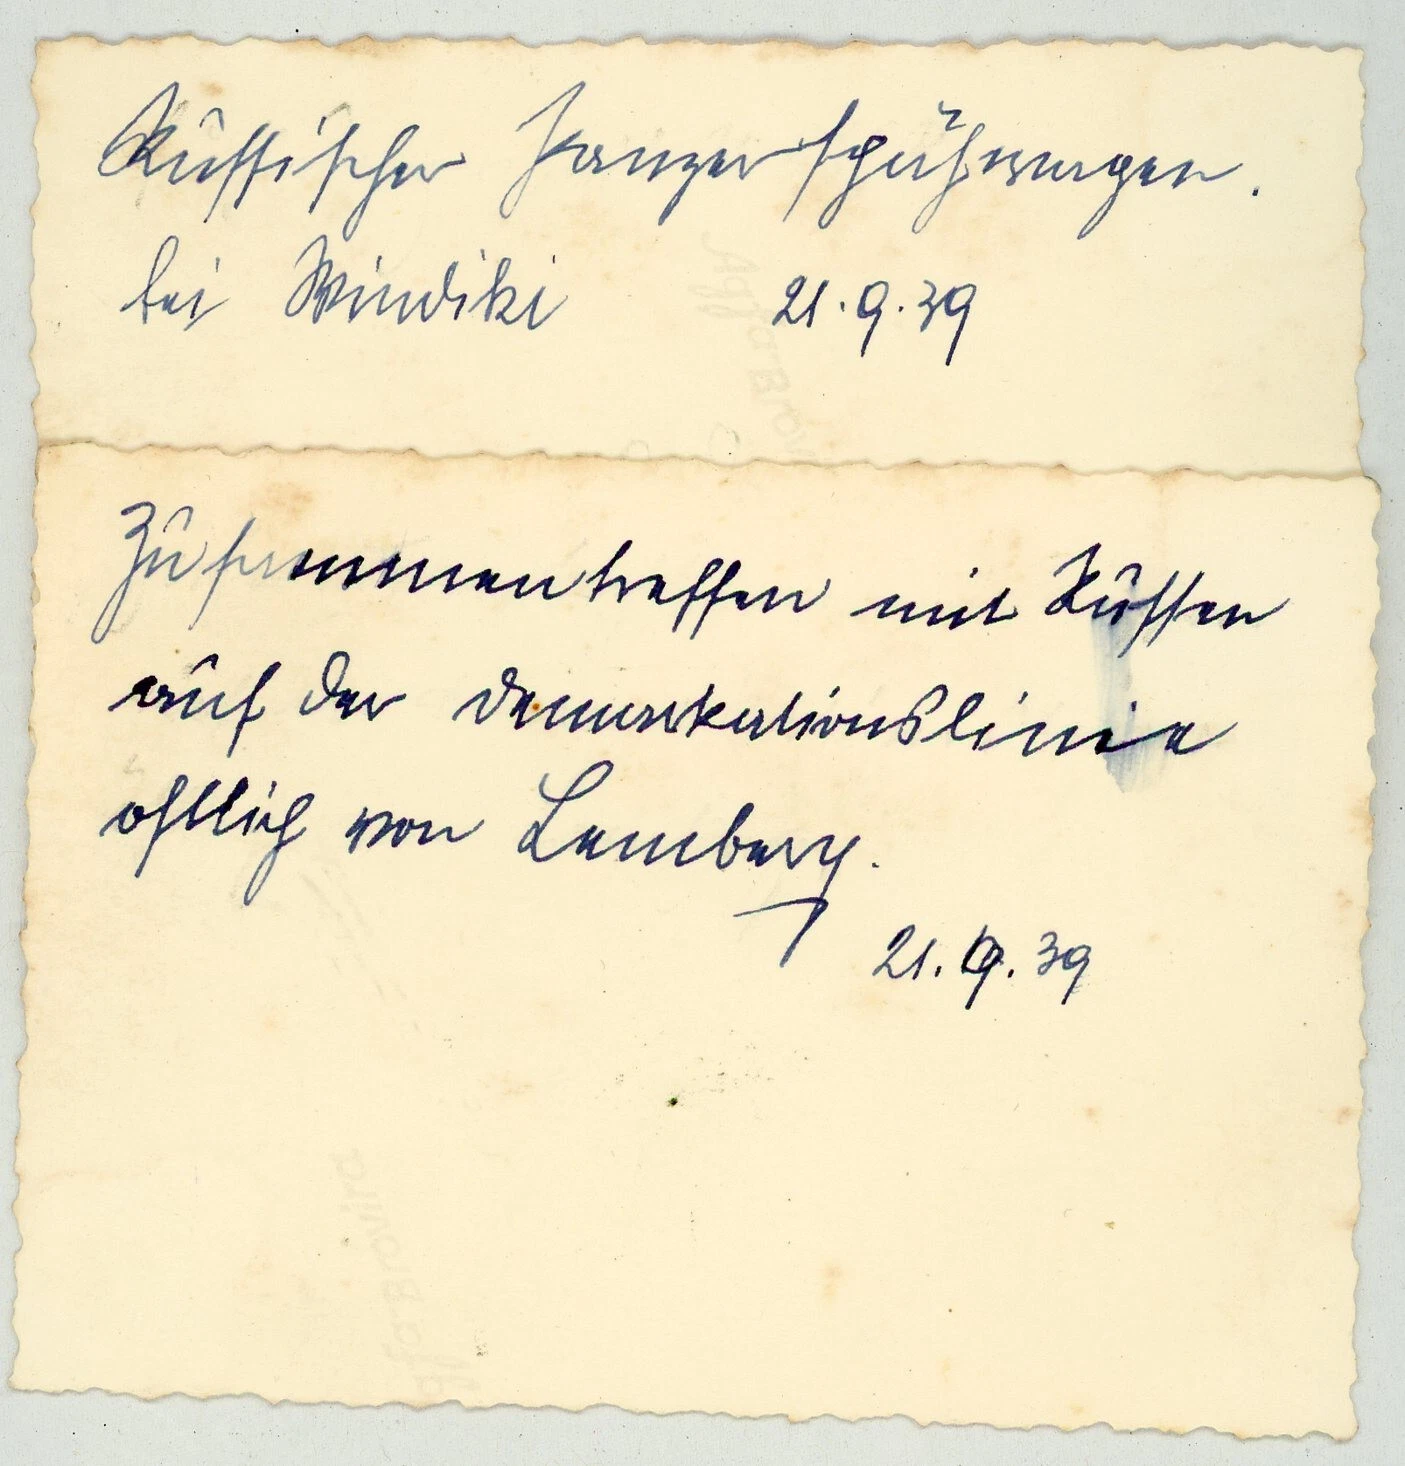 Russischer Panzerspähwagen.
bei Windiki 21.9.39
Zusammentreffen mit Russen
auf der Demarkationslinie
östlich von Lemberg.
21.9.39